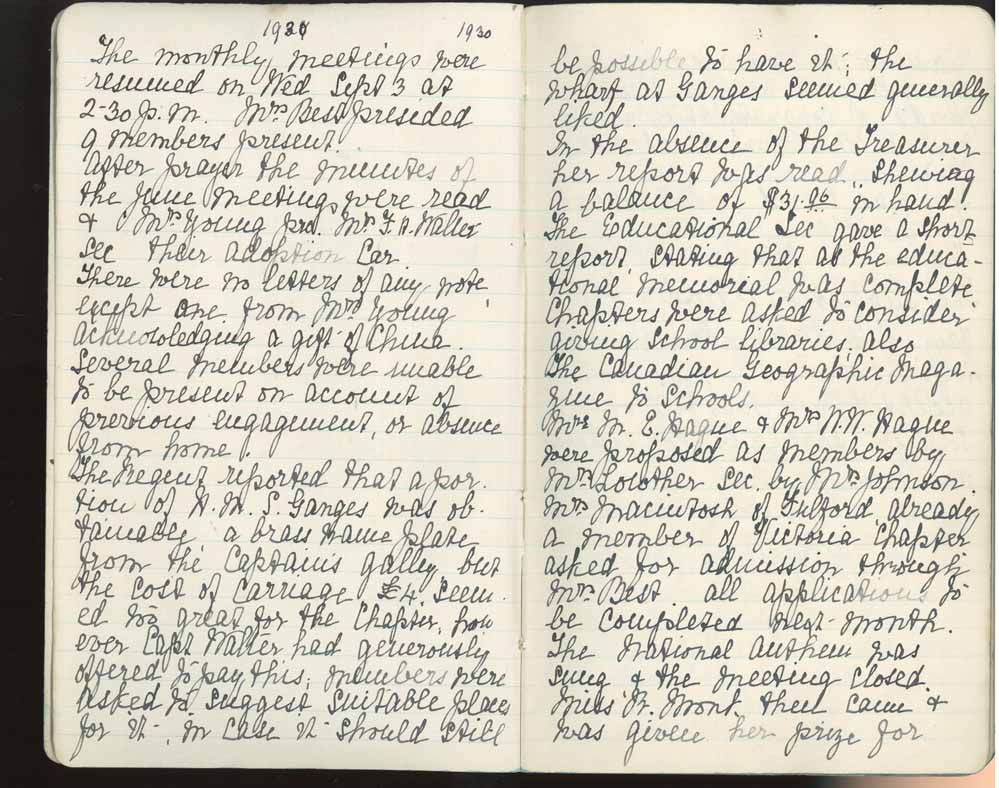 1930
1930
The monthly meetings were
resumed on Wed Sept 3 at
2-30 p.m. Mrs Best presided
9 members present.
After prayer the minutes of
the June meeting were read
& Mrs Young pro. Mrs F. A. Walter
sec their adoption Car
There were no letters of any note
except one from Mrs Young
acknowledging a gift of China.
Several members were unable
to be present on account of
previous engagement, or absence
from home.
The Regent reported that a por-
tion of H. M. S. Ganges was ob-
tainable a brass name plate
from the Captain's galley but
the cost of carriage £4. seem-
ed too great for the Chapter, how
ever Capt Walter had generously
offered to pay this; members were
asked to suggest suitable places
for it, in case it should still
be possible to have it; the
wharf at Ganges seemed generally
liked.
In the absence of the Treasurer
her report was read, shewing
a balance of $31.06 in hand.
The Educational Sec gave a short
report, stating that as the educa-
tional memorial was complete
Chapters were asked to consider
giving School libraries, also
the Canadian Geographic Maga-
zine to Schools.
Mrs M. E. Hague & Mrs W. W. Hague
were proposed as members by
Mrs Lowther sec. by Mrs Johnson.
Mrs Macintosh of Fulford, already
a member of Victoria Chapter
asked for admission through
Mrs Best all applications to
be completed next month.
The National Anthem was
sung & the meeting closed.
Miss Mont. then came &
was given her prize for